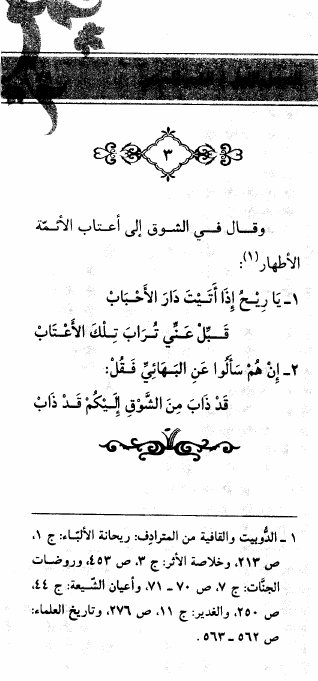 ٣
وقال في الشوق إلى أعتاب الأئمّة
الأطهار(١):
١ـ يَا رِيْحُ إِذَا أَتَيْتَ دَارَ الأَحْبَابْ
قَبِّلْ عَنِّي تُرَابَ تِلْكَ الأَعْتَابْ
٢ـ إِنْ هُمْ سَأَلُوا عَنِ البَهَائِيِّ فَقُلْ:
قَدْ ذَابَ مِنَ الشَّوْقِ إِلَيْكُمْ قَدْ ذَابْ
١ ـ الدُّوبيت والقافية من المترادِف: ريحانة الألبّاء: ج ١،
ص ٢١٣، وخلاصة الأثر: ج ٣، ص ٤٥٣، وروضات
الجنَّات: ج ٧، ص ٧٠ ـ ٧١، وأعيان الشّيعة: ج ٤٤،
ص ٢٥٠، والغدير: ج ١١، ص ٢٧٦، وتاريخ العلماء:
ص ٥٦٢ ـ ٥٦٣ .